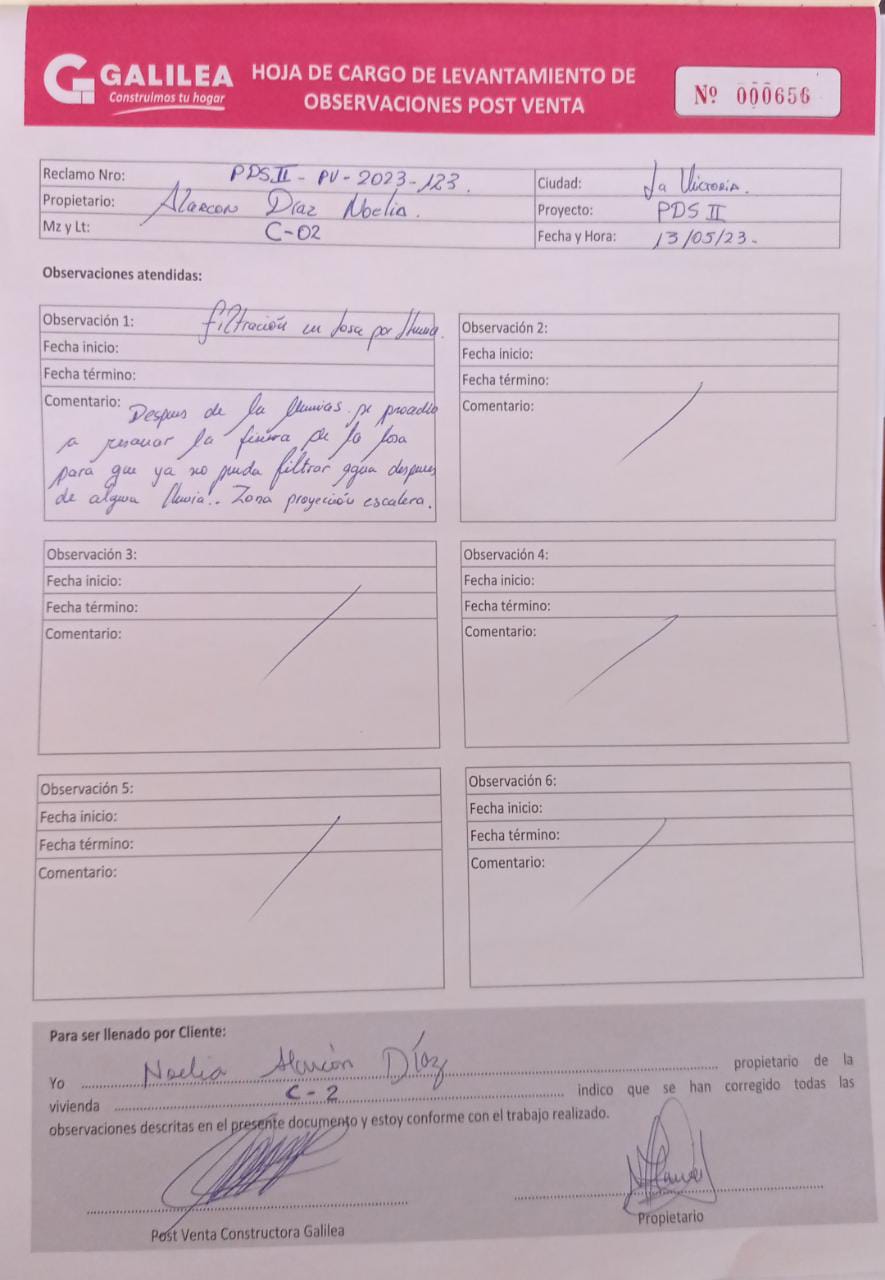 GALILEA
Construimos tu hogar
HOJA DE CARGO DE LEVANTAMIENTO DE
OBSERVACIONES POST VENTA
Nº 000656
Reclamo Nro: PDS II - PV - 2023 - 123.
Propietario: Alarcon Díaz Noelia.
Mz y Lt: C-02
Ciudad: La Victoria.
Proyecto: PDS II
Fecha y Hora: 13/05/23.-
Observaciones atendidas:
Observación 1: filtración en losa por lluvia.
Fecha inicio:
Fecha término:
Comentario: Despues de la lluvias se procedio
a resanar la fisura de la losa
para que ya no pueda filtrar agua despues
de alguna lluvia.. Zona proyección escalera.
Observación 2:
Fecha inicio:
Fecha término:
Comentario:
Observación 3:
Fecha inicio:
Fecha término:
Comentario:
Observación 4:
Fecha inicio:
Fecha término:
Comentario:
Observación 5:
Fecha inicio:
Fecha término:
Comentario:
Observación 6:
Fecha inicio:
Fecha término:
Comentario:
Para ser llenado por Cliente:
Yo Noelia Alarcón Díaz propietario de la
vivienda C-2 indico que se han corregido todas las
observaciones descritas en el presente documento y estoy conforme con el trabajo realizado.
Post Venta Constructora Galilea
Propietario